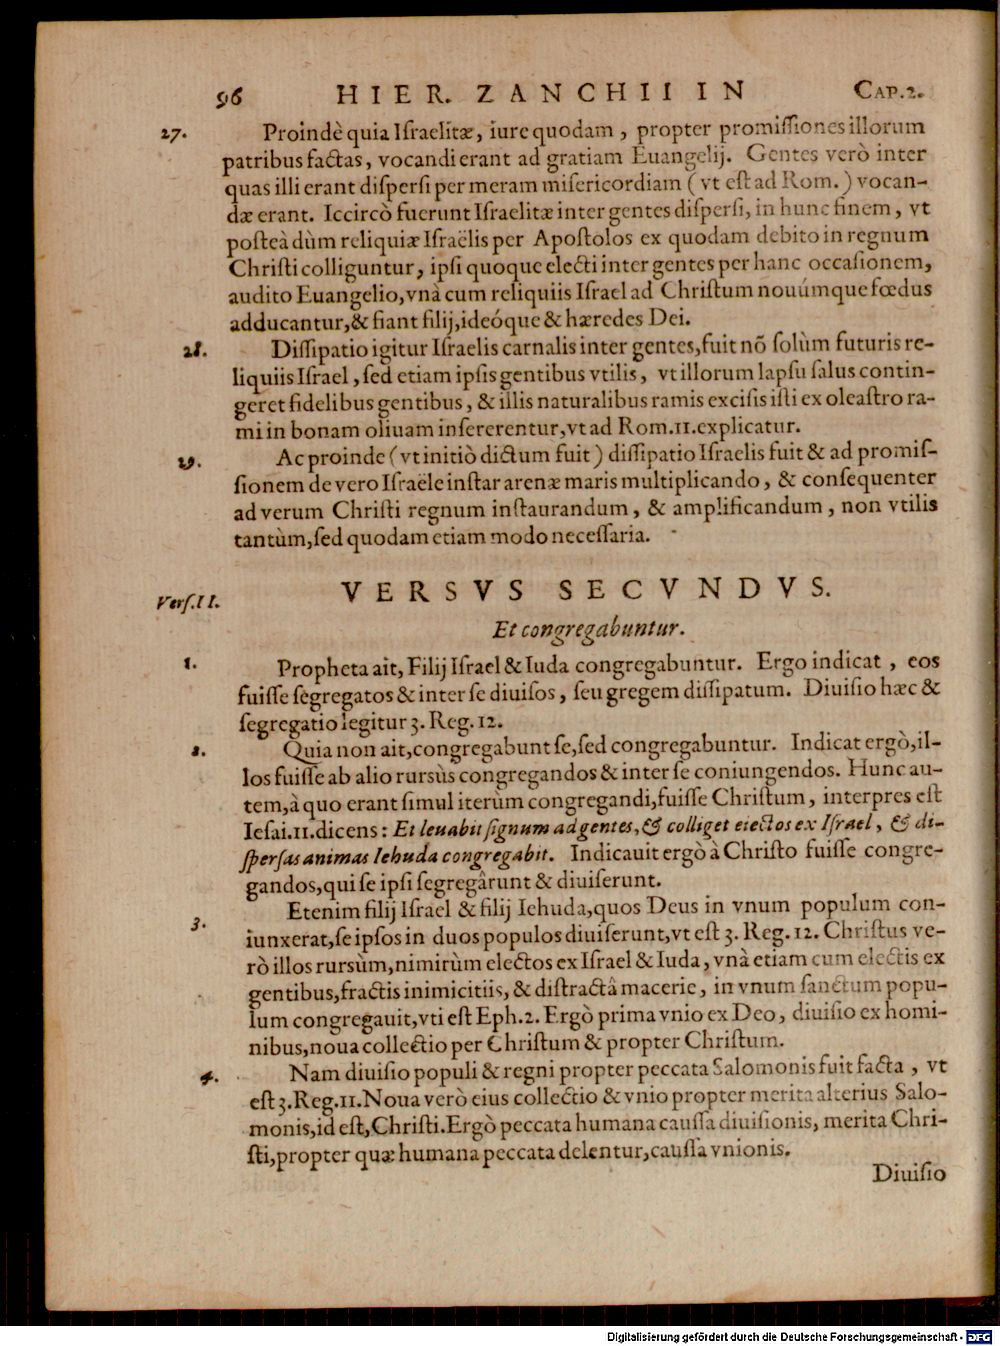 96 HIER. ZANCHII IN CAP.2.
27. Proindè quia Iſraelitæ, iure quodam, propter promiſſiones illorum
patribus factas, vocandi erant ad gratiam Euangelij. Gentes verò inter
quas illi erant diſperſi per meram miſericordiam (vt eſt ad Rom.) vocan-
dæ erant. Iccircò fuerunt Iſraelitæ inter gentes diſperſi, in hunc finem, vt
poſteà dùm reliquiæ Iſraëlis per Apoſtolos ex quodam debito in regnum
Chriſti colliguntur, ipſi quoque electi inter gentes per hanc occaſionem,
audito Euangelio, vnà cum reliquiis Iſrael ad Chriſtum nouúmque fœdus
adducantur, & fiant filij, ideóque & hæredes Dei.
28. Diſſipatio igitur Iſraelis carnalis inter gentes, fuit nõ ſolùm futuris re-
liquiis Iſrael, ſed etiam ipſis gentibus vtilis, vt illorum lapſu ſalus contin-
geret fidelibus gentibus, & illis naturalibus ramis exciſis iſti ex oleaſtro ra-
mi in bonam oliuam inſererentur, vt ad Rom.11. explicatur.
29. Ac proinde (vt initiò dictum fuit) diſſipatio Iſraelis fuit & ad promiſ-
ſionem de vero Iſraële inſtar arenæ maris multiplicando, & conſequenter
ad verum Chriſti regnum inſtaurandum, & amplificandum, non vtilis
tantùm, ſed quodam etiam modo neceſſaria.
Verſ.II. VERSVS SECVNDVS.
Et congregabuntur.
1. Propheta ait, Filij Iſrael & Iuda congregabuntur. Ergo indicat, eos
fuiſſe ſegregatos & inter ſe diuiſos, ſeu gregem diſſipatum. Diuiſio hæc &
ſegregatio legitur 3. Reg. 12.
2. Quia non ait, congregabunt ſe, ſed congregabuntur. Indicat ergò, il-
los fuiſſe ab alio rursùs congregandos & inter ſe coniungendos. Hunc au-
tem, à quo erant ſimul iterùm congregandi, fuiſſe Chriſtum, interpres eſt
Ieſai.11. dicens: Et leuabit ſignum ad gentes, & colliget eiectos ex Iſrael, & di-
ſperſas animas Iehuda congregabit. Indicauit ergò à Chriſto fuiſſe congre-
gandos, qui ſe ipſi ſegregârunt & diuiſerunt.
3. Etenim filij Iſrael & filij Iehuda, quos Deus in vnum populum con-
iunxerat, ſe ipſos in duos populos diuiſerunt, vt eſt 3. Reg. 12. Chriſtus ve-
rò illos rursùm, nimirùm electos ex Iſrael & Iuda, vnà etiam cum electis ex
gentibus, fractis inimicitiis, & diſtractâ macerie, in vnum ſanctum popu-
lum congregauit, vti eſt Eph.2. Ergò prima vnio ex Deo, diuiſio ex homi-
nibus, noua collectio per Chriſtum & propter Chriſtum.
4. Nam diuiſio populi & regni propter peccata Salomonis fuit facta, vt
eſt 3. Reg.11. Noua verò eius collectio & vnio propter merita alterius Salo-
monis, id eſt, Chriſti. Ergò peccata humana cauſſa diuiſionis, merita Chri-
ſti, propter quæ humana peccata delentur, cauſſa vnionis.
Diuiſio
Digitalisierung gefördert durch die Deutsche Forschungsgemeinschaft - DFG